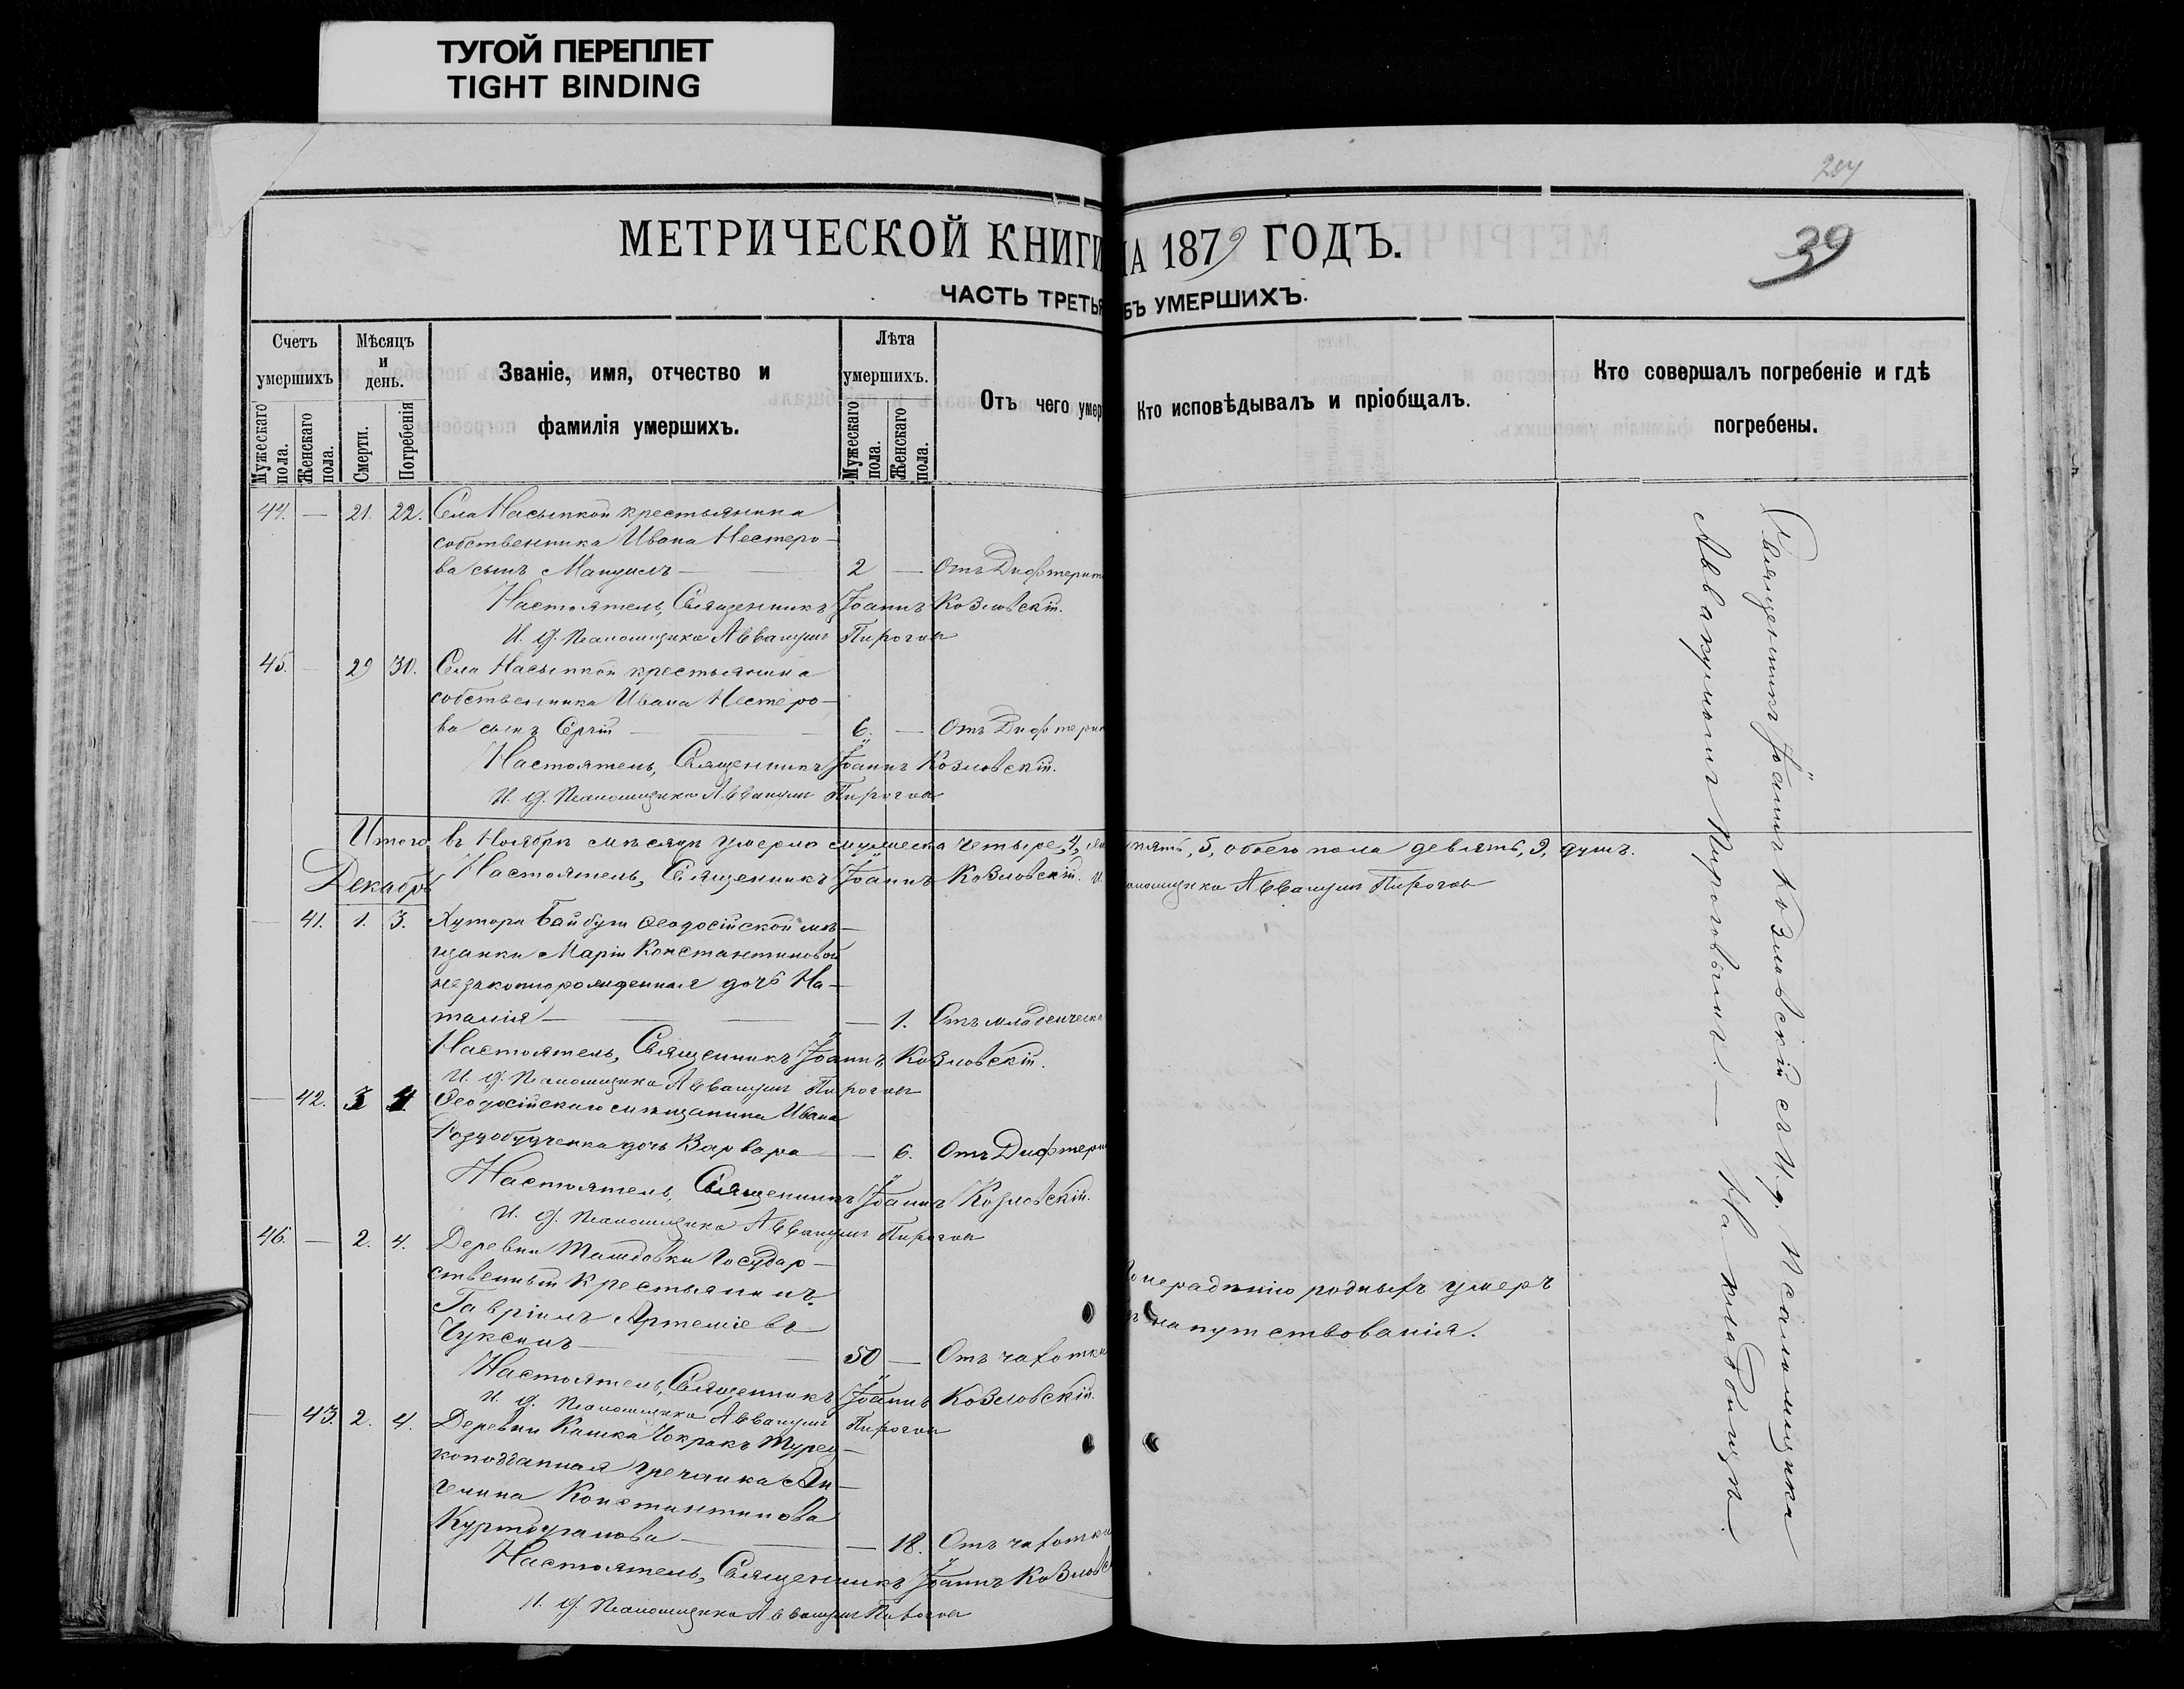 ТУГОЙ ПЕРЕПЛЕТ
TIGHT BINDING
204
39
МЕТРИЧЕСКОЙ КНИГИ НА 1879 ГОДЪ.
ЧАСТЬ ТРЕТЬЯ БЪ УМЕРШИХЪ.
Счетъ умершихъ
Мужескаго пола.
Женскаго пола.
Мѣсяцъ и день.
Смерти.
Погребенія
Званіе, имя, отчество и
фамилія умершихъ.
Лѣта умершихъ.
Мужескаго пола.
Женскаго пола.
Отъ чего умер
Кто исповѣдывалъ и пріобщалъ.
Кто совершалъ погребеніе и гдѣ
погребены.
44. — 21. 22. Села Насыпкой крестьянина
собственника Ивана Нестеро-
ва сынъ Мануилъ — 2 — Отъ Дифтерит
Настоятель, Священникъ Іоаннъ Козловскій.
И. д. Псаломщика Аввакумъ Пироговъ
45. — 29 30. Села Насыпкой крестьянина
собственника Ивана Нестеро-
ва сынъ Сергій — 6. — Отъ Дифтери
Настоятель, Священникъ Іоаннъ Козловскій.
И. д. Псаломщика Аввакумъ Пироговъ
Итого въ Ноябрѣ мѣсяцѣ умерло мужеска четыре, 4, жен пять, 5, обоего пола девять, 9, душъ.
Декабрь
Настоятель, Священникъ Іоаннъ Козловскій. И. аломщика Аввакумъ Пироговъ
— 41. 1. 3. Хутора Байбуга Ѳеодосійской мѣ-
щанки Маріи Константиновой
незаконнорожденная дочь На-
талія — — 1. Отъ младенческ
Настоятель, Священникъ Іоаннъ Козловскій.
И. д. Псаломщика Аввакумъ Пироговъ
— 42. 3 4 Ѳеодосійскаго мѣщанина Ивана
дочь Варвара — — 6. Отъ Дифтери
Настоятель, Священникъ Іоаннъ Козловскій.
И. д. Псаломщика Аввакумъ Пироговъ
46. — 2. 4. Деревни Государ-
ственный Крестьянинъ
Гавріилъ Артеміевъ
Чуксинъ — 50 — Отъ чахотки
о нерадѣнію родныхъ умеръ
напутствованія.
Настоятель, Священникъ Іоаннъ Козловскій.
И. д. Псаломщика Аввакумъ Пироговъ
— 43. 2. 4. Деревни Кашка Чокракъ Турец-
коподданная гречанка Ан-
гелина Константинова
Куртдуганова — — 18. Отъ чахотки
Настоятель, Священникъ Іоаннъ Козловс
И. д. Псаломщика Аввакумъ Пироговъ
Священникъ Іоаннъ Козловскій съ И. д. Псаломщика
Аввакумомъ Пироговымъ. — На кладбищѣ.